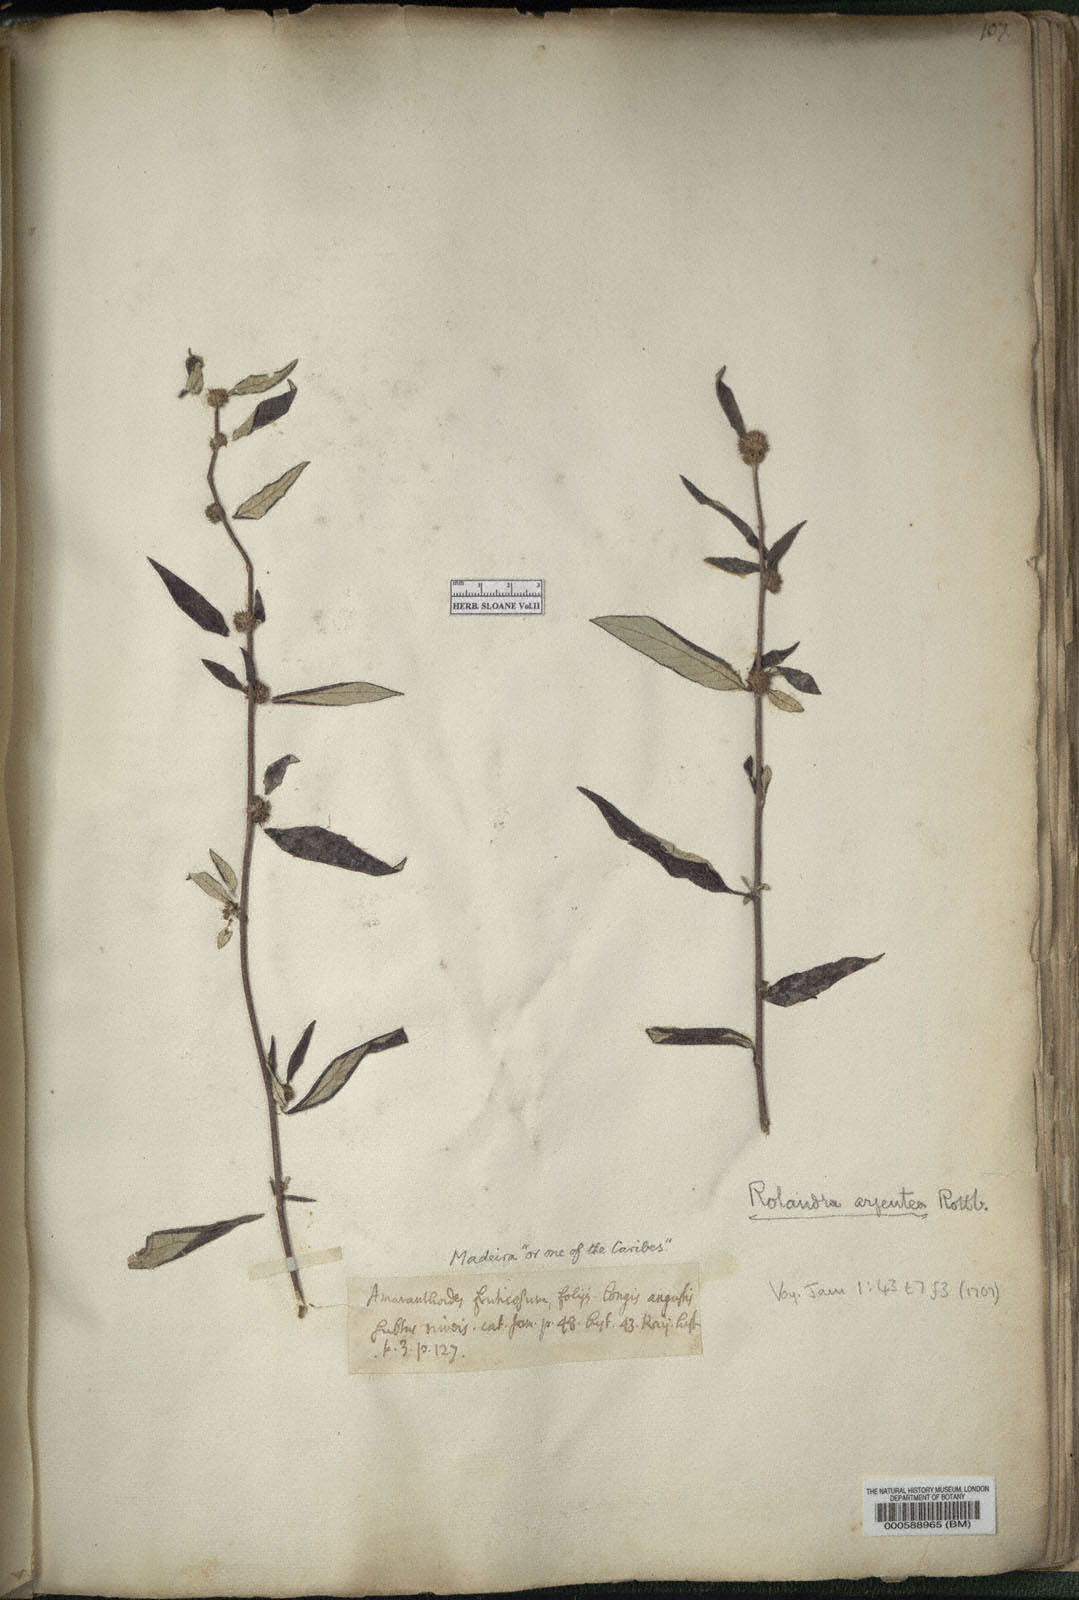 107.
mm 1 2 3
HERB. SLOANE Vol.II
Rolandra argentea Rottb.
Madeira "or one of the Caribes"
Voy. Jam 1: 43 t 7 f3 (1707)
Amaranthoides fruticosum, folijs longis angustis
subtus niveis. cat. Jam. p. 48. hyst. 43. Raij. hist
. t. 3. p. 127.
THE NATURAL HISTORY MUSEUM, LONDON
DEPARTMENT OF BOTANY
000588965 (BM)